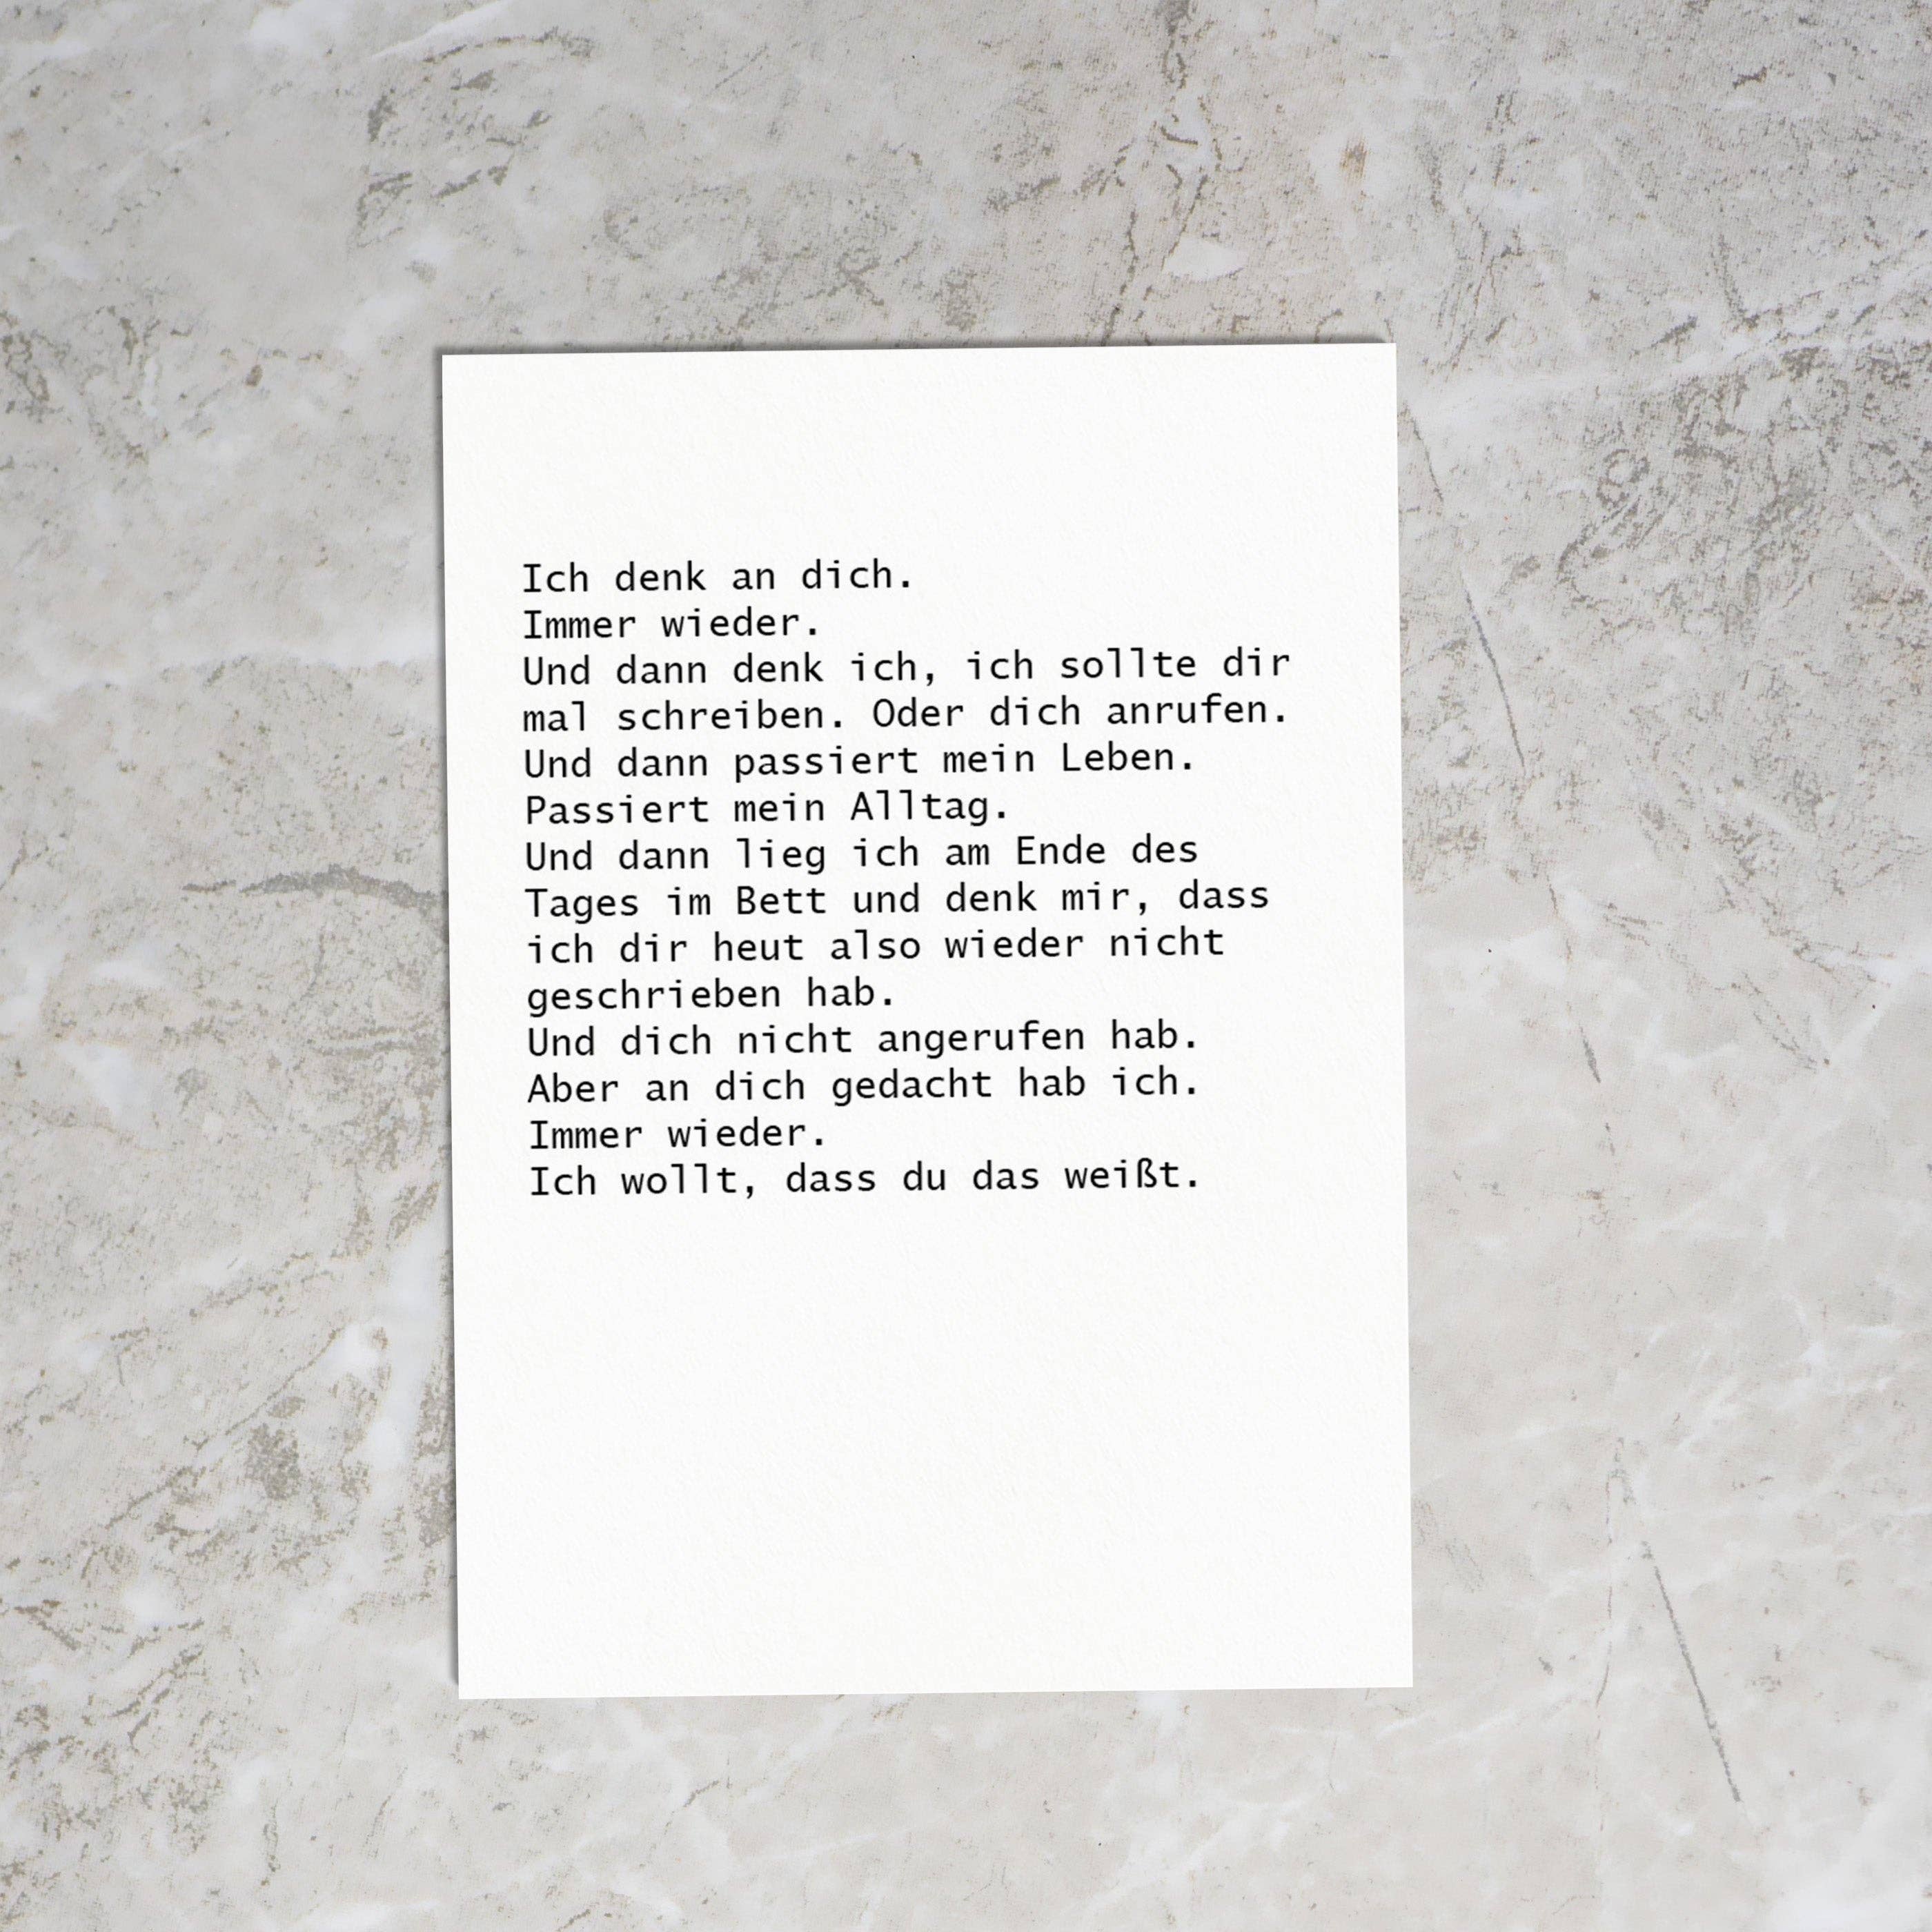 Ich denk an dich.
Immer wieder.
Und dann denk ich, ich sollte dir
mal schreiben. Oder dich anrufen.
Und dann passiert mein Leben.
Passiert mein Alltag.
Und dann lieg ich am Ende des
Tages im Bett und denk mir, dass
ich dir heut also wieder nicht
geschrieben hab.
Und dich nicht angerufen hab.
Aber an dich gedacht hab ich.
Immer wieder.
Ich wollt, dass du das weißt.